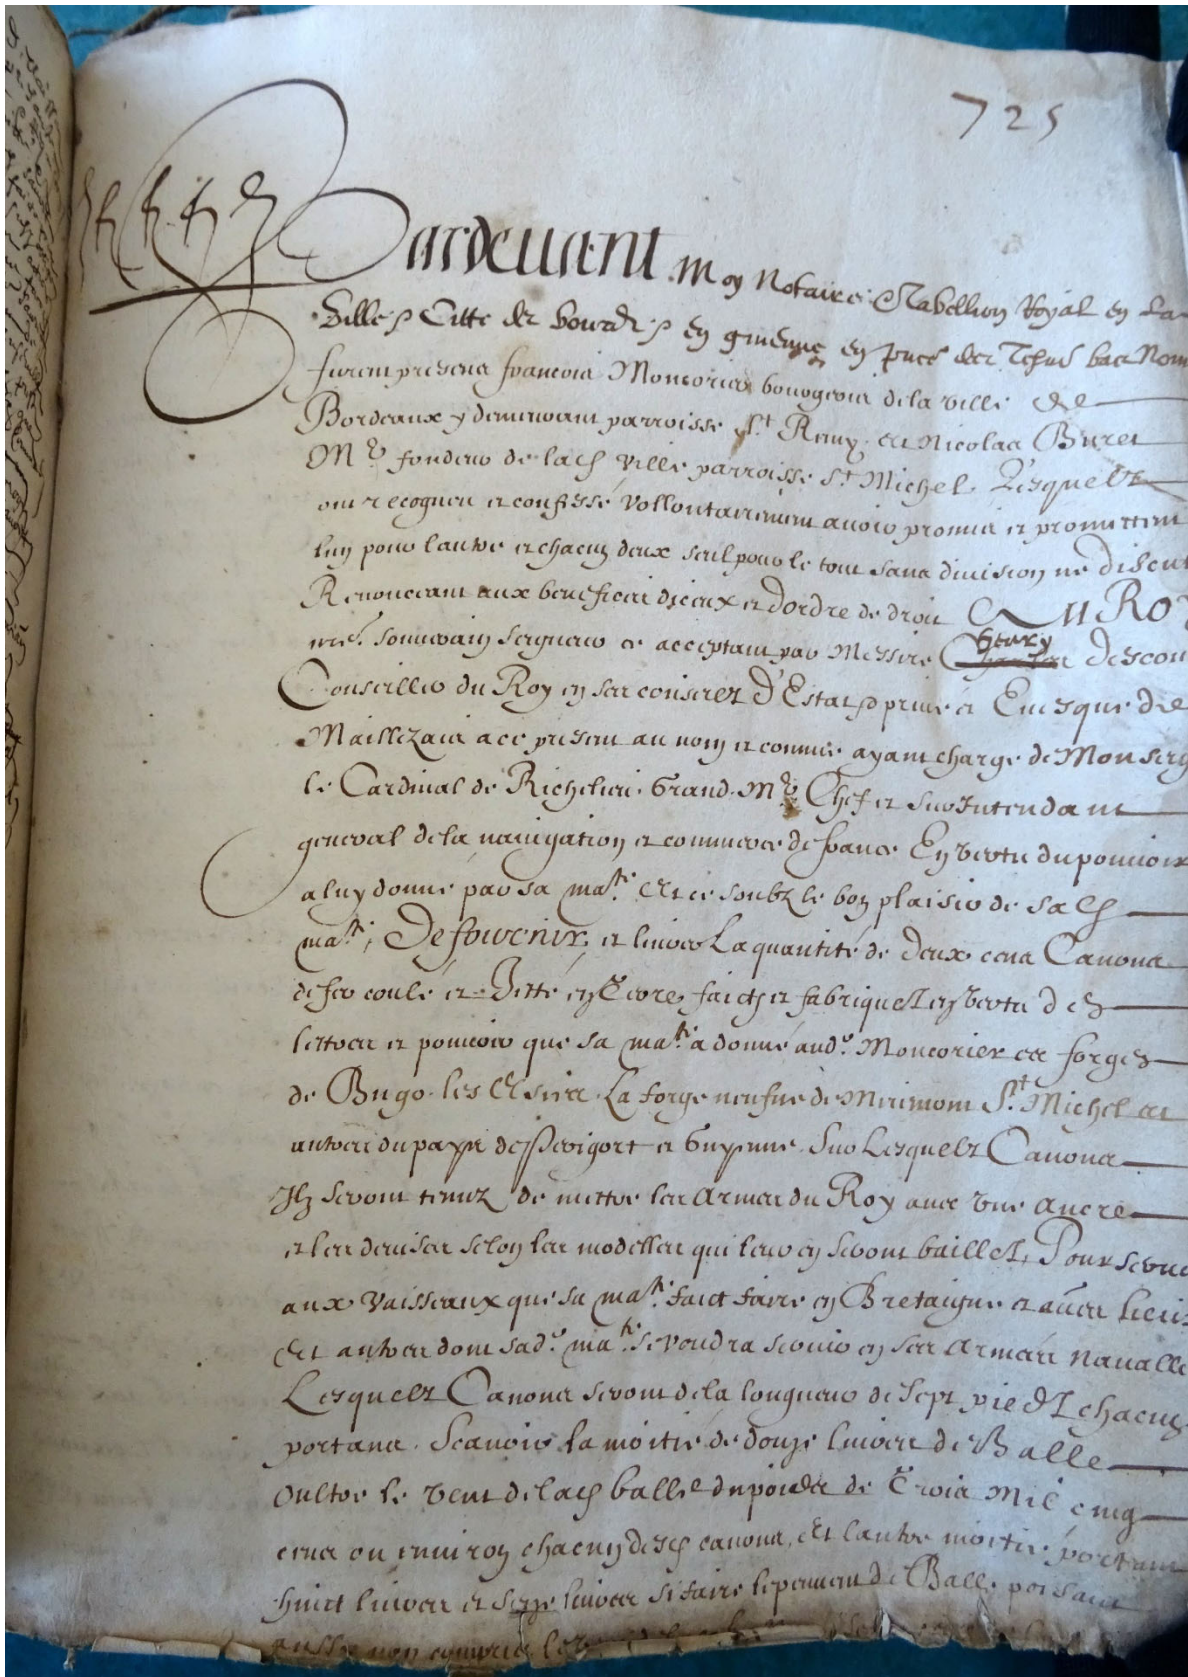 725
Pardevant Moy Notaire & Tabellion Royal en La
Ville & Citte de bourd. & en guienne en pnce des Tesms bas Nom
furent presens francois Moncorier bourgeois de la ville de
Bordeaux y demeurant parroisse St Remy. et Nicolas Buret
Mre fondeur de lad ville parroisse St Michel Lesquelz
ont recogneu et confessé vollontairement avoir promis et promettent
lun pour lautre et chacun deux seul pour le tout sans division ne discut
Renonceant aux benefices diceux et dordre de droit AU ROY
nre. souverain seigneur ce acceptant par Messire Henry Descou
Conseiller du Roy en ses conseilz D'Estat & privé et Evesque de
Maillezais a ce present au nom et comme ayant charge de Monseig
le Cardinal de Richelieu Grand Mre Chef et Surintendant
general de la navigation et commerce de france En vertu du pouvoir
a luy donné par sa mate. Et ce soubz le bon plaisir de sad
mate, De fournir et livrer La quantité de deux cens Canons
de fer coulé et Jetté en Terre faictz et fabriquez en vertu des
lettres et pouvoir que sa mate a donné aud. Moncorier es forges
de Bugo les Eysies La forge neufve de Mirimont St Michel et
autres du pays de Perigort et Guyenne Sur Lesquelz Canons
Ilz seront tenuz de mettre les Armes du Roy avec une ancre
et les devises selon les modelles qui leur en seront baillez, Pour servir
aux Vaisseaux que sa mate faict faire en Bretaigne et aues lieux
Et autres dont sad. mate se voudra servir en ses Armées navalles
Lesquelz Canons seront de la longueur de sept piedz chacun
portans Scavoir la moitié de douze livres de Balle
oultre le vent de lad balle du poidz de Trois Mil cinq
cens ou environ chacun desd canons, Et lautre moitié portant
huict livres et seize livres si faire le peuvent de Balle poisant
aussy non compris le